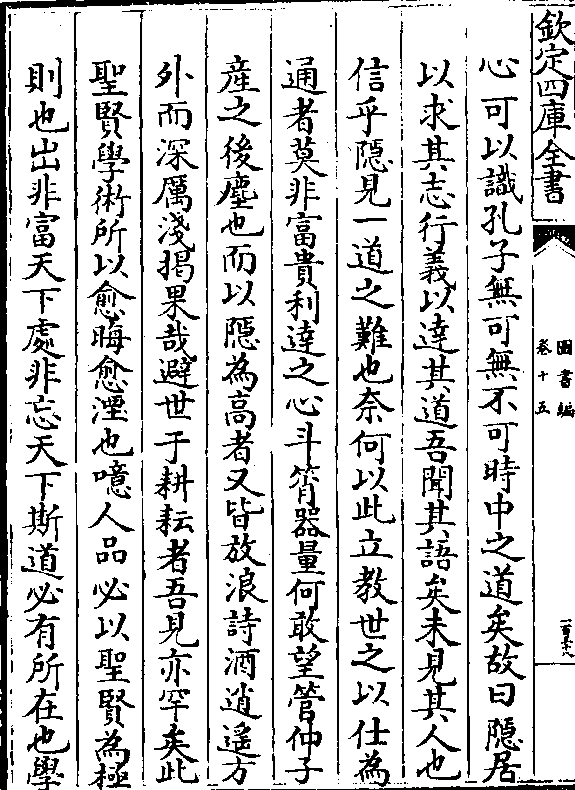 欽定四庫全書
圖書編
卷十五
心可以識孔子無可無不可時中之道矣故曰隱居
以求其志行義以達其道吾聞其語矣未見其人也
信乎隱見一道之難也奈何以此立教世之以仕為
通者莫非富貴利達之心斗筲器量何敢望管仲子
產之後塵也而以隱為高者又皆放浪詩酒逍遙方
外而深厲淺揭果哉避世于耕耘者吾見亦罕矣此
聖賢學術所以愈晦愈湮也噫人品必以聖賢為極
則也出非富天下處非忘天下斯道必有所在也學